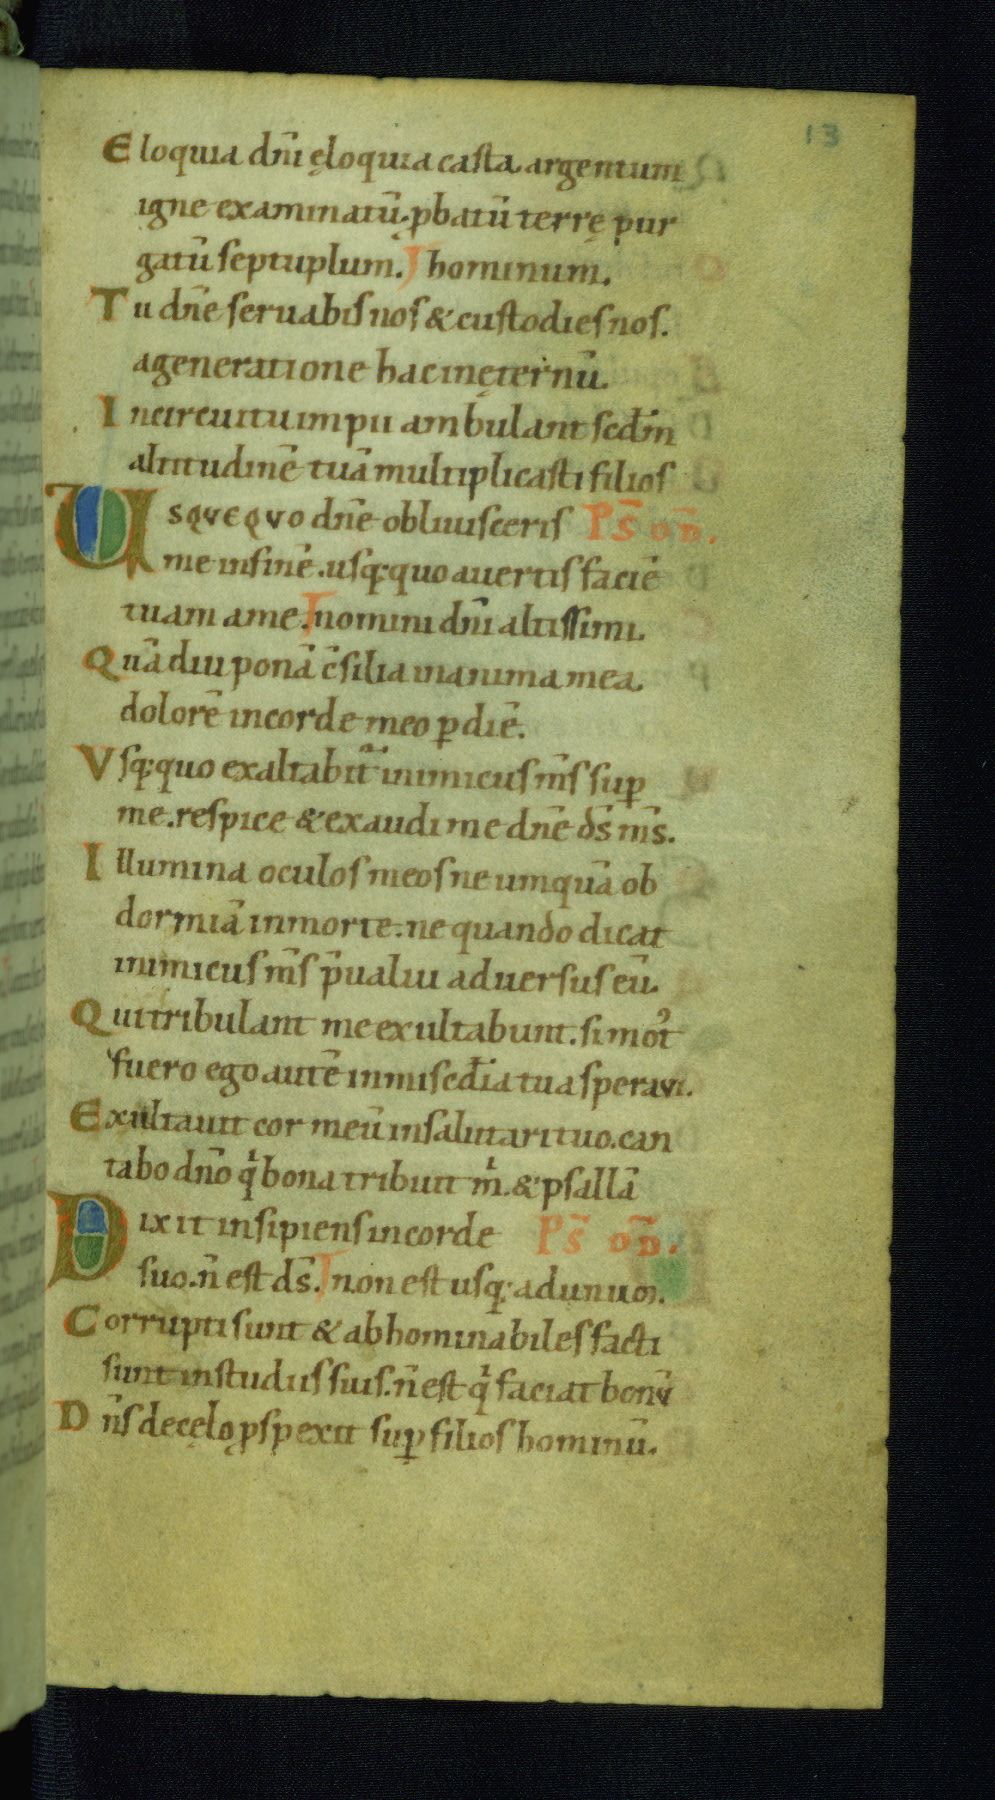 13
Eloquia dn̄i ęloquia casta argentum
igne examinatū. ꝓbatū terrę pur
gatū septuplum. hominum.
Tu dn̄e seruabis nos & custodies nos.
a generatione hac in ęternū.
In circuitu impii ambulant secd̄m
altitudinē tuā multiplicasti filios
Usqveqvo dn̄e obliuisceris Ps̄ on̄.
me in finē. usq; quo auertis faciē
tuam a me. nomini dn̄i altissimi.
Quādiu ponā c̄silia in anima mea.
dolorē in corde meo ꝑ diē.
Vsq; quo exaltabit᷑ inimicus m̄s suꝑ
me. respice & exaudi me dn̄e ds̄ m̄s.
Illumina oculos meos ne umquā ob
dormiā in morte. ne quando dicat
inimicus m̄s p̄ualui aduersus eū.
Qui tribulant me exultabunt. si mot᷑
fuero ego autē in miscd̄ia tua speravi.
Exultauit cor meū in salutari tuo. can
tabo dn̄o qⁱ bona tribuit mⁱ. & psallā
Dixit insipiens in corde Ps̄ DD̄.
suo. n̄ est ds̄. non est usq; ad unum.
Corrupti sunt & abhominabiles facti
sunt in studiis suis. n̄ est qⁱ faciat bonū
Dn̄s de cęlo ꝓspexit suꝑ filios hominū.